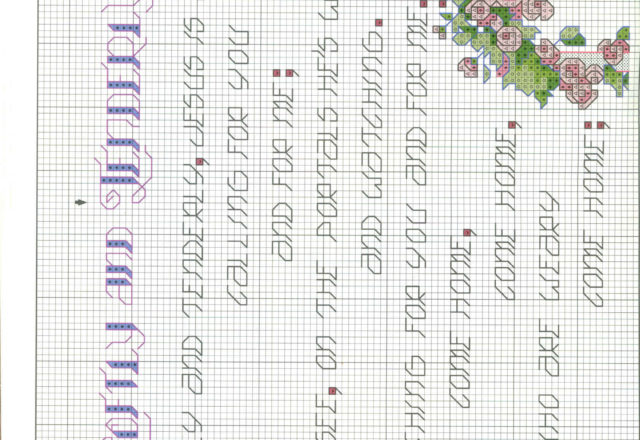 oftly and Tenderly
LY AND TENDERLY, JESUS IS
CALLING FOR YOU
AND FOR ME;
SEE, ON THE PORTALS HE'S W
AND WATCHING.
CHING FOR YOU AND FOR ME
COME HOME,
COME HOME,
HO ARE WEARY
COME HOME;